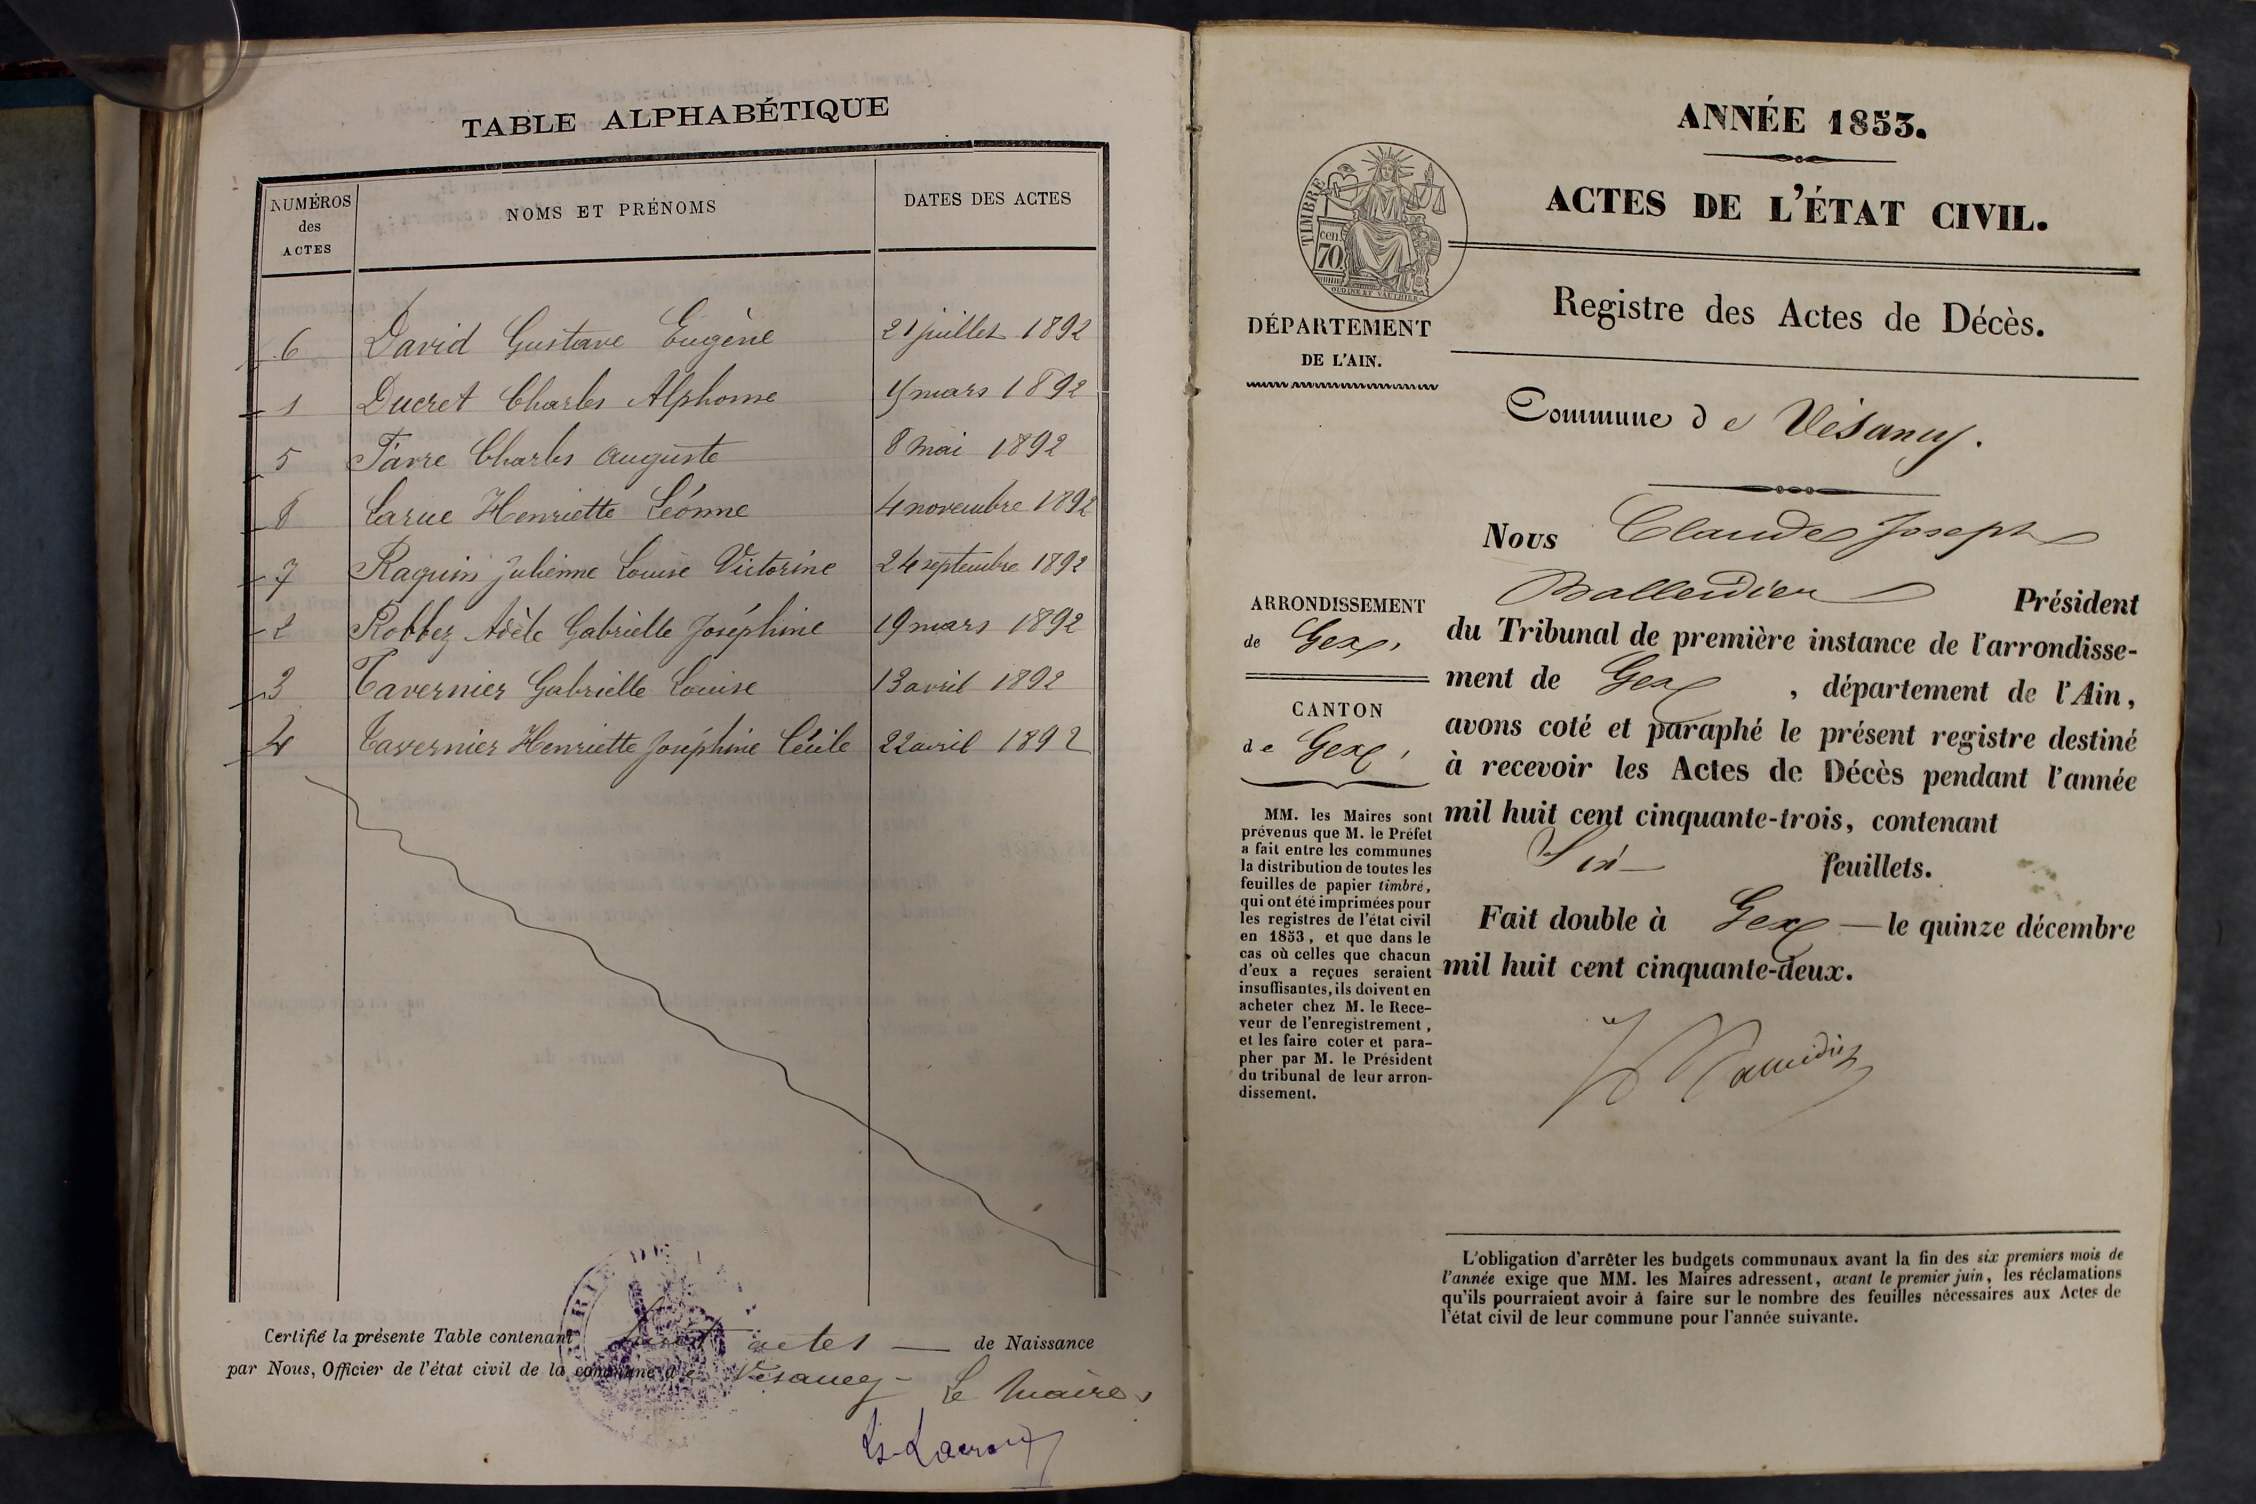 TABLE ALPHABÉTIQUE
NUMÉROS
des
ACTES
NOMS ET PRÉNOMS
DATES DES ACTES
6 David Gustave Eugène 21 juillet 1892
1 Ducret Charles Alphonse mars 1892
5 Favre Charles Auguste 8 mai 1892
8 Larue Henriette Léonne 4 novembre 1892
7 Raquin Julienne Louise Victorine 24 septembre 1892
2 Robbez Adèle Gabrielle Joséphine 19 mars 1892
3 Tavernier Gabrielle Louise 13 avril 1892
4 Tavernier Henriette Joséphine Cécile 22 avril 1892
Certifié la présente Table contenant huit actes — de Naissance
par Nous, Officier de l'état civil de la commune de Vesancy - Le Maire,
Ls Lacroix
ANNÉE 1853.
ACTES DE L'ÉTAT CIVIL.
TIMBRE
cen.
70
OUDINE ET VAUTHIER
DÉPARTEMENT
DE L'AIN.
Registre des Actes de Décès.
Commune de Vésancy.
Nous Claude Joseph
Balleidier Président
du Tribunal de première instance de l'arrondisse-
ment de Gex, département de l'Ain,
avons coté et paraphé le présent registre destiné
à recevoir les Actes de Décès pendant l'année
mil huit cent cinquante-trois, contenant
Six feuillets.
Fait double à Gex — le quinze décembre
mil huit cent cinquante-deux.
ARRONDISSEMENT
de Gex,
CANTON
de Gex,
MM. les Maires sont
prévenus que M. le Préfet
a fait entre les communes
la distribution de toutes les
feuilles de papier timbré,
qui ont été imprimées pour
les registres de l'état civil
en 1853, et que dans le
cas où celles que chacun
d'eux a reçues seraient
insuffisantes, ils doivent en
acheter chez M. le Rece-
veur de l'enregistrement,
et les faire coter et para-
pher par M. le Président
du tribunal de leur arron-
dissement.
L'obligation d'arrêter les budgets communaux avant la fin des six premiers mois de
l'année exige que MM. les Maires adressent, avant le premier juin, les réclamations
qu'ils pourraient avoir à faire sur le nombre des feuilles nécessaires aux Actes de
l'état civil de leur commune pour l'année suivante.